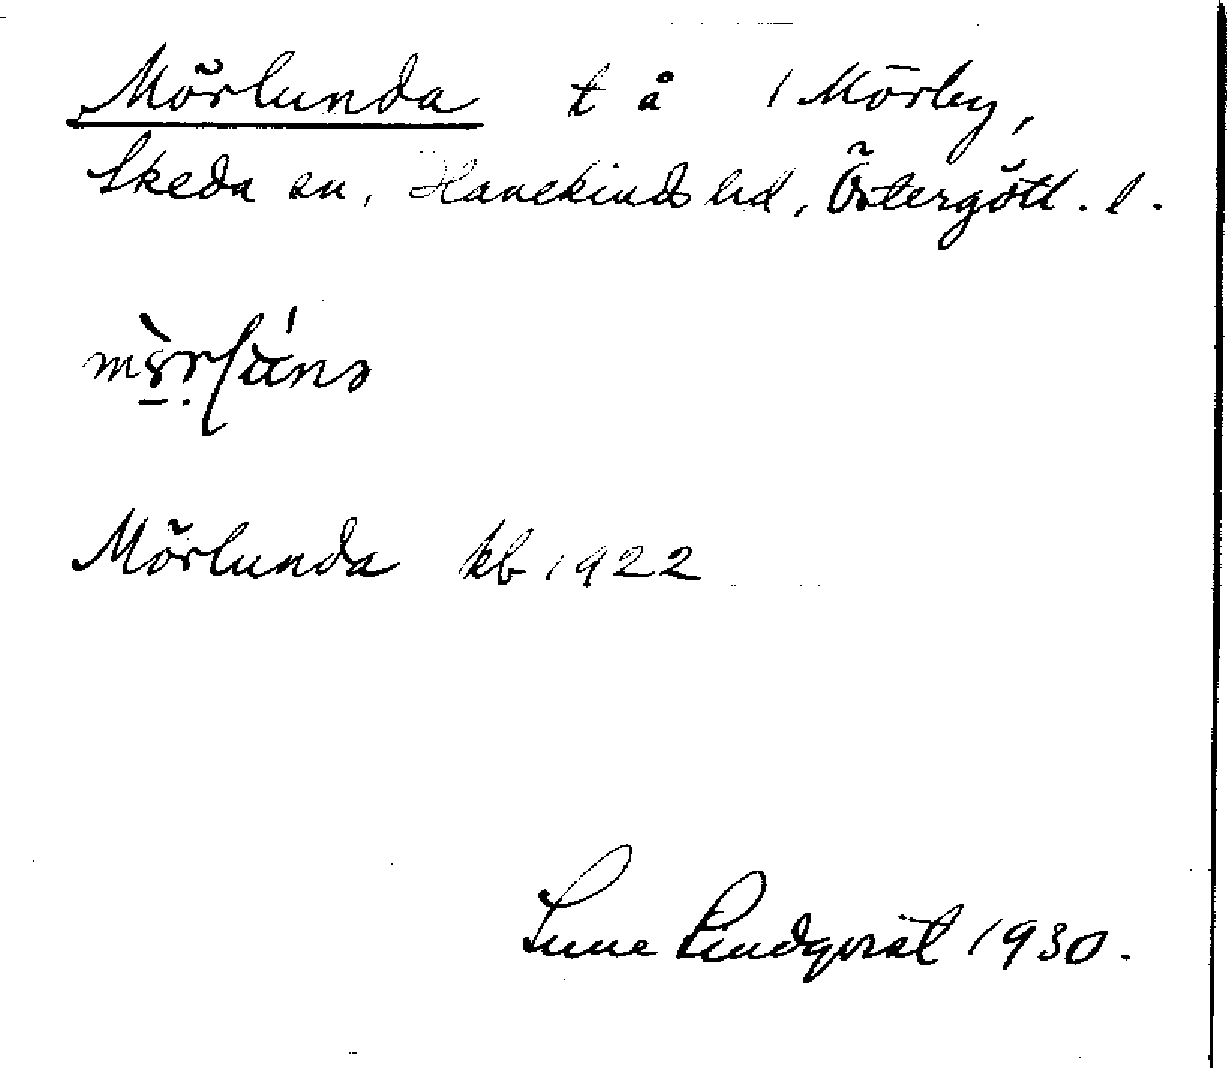 Mörlunda t å 1 Mörby,
Skeda sn, Hanekinds hd, Östergötl. l.
Mörlunda kb 1922
Sune Lindqvist 1930.